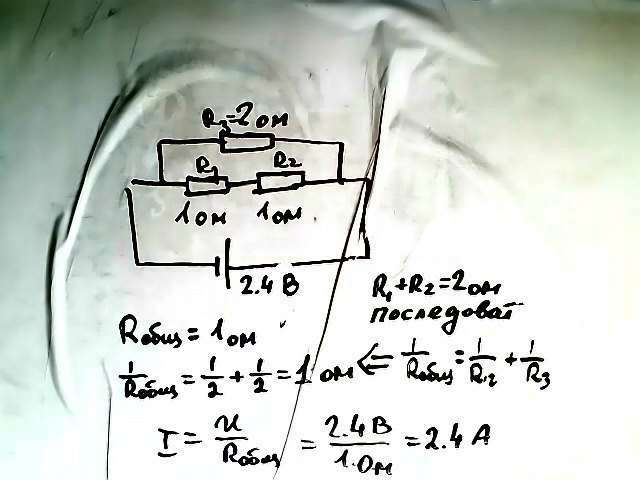 R3=2 ом
R1 R2
1 ом 1 ом
2.4 В
R1+R2=2 ом
последоват
Rобщ = 1 ом
1/Rобщ = 1/2 + 1/2 = 1 ом ⇐ 1/Rобщ = 1/R12 + 1/R3
I = u/Rобщ = 2.4 В/1.Ом = 2.4 А